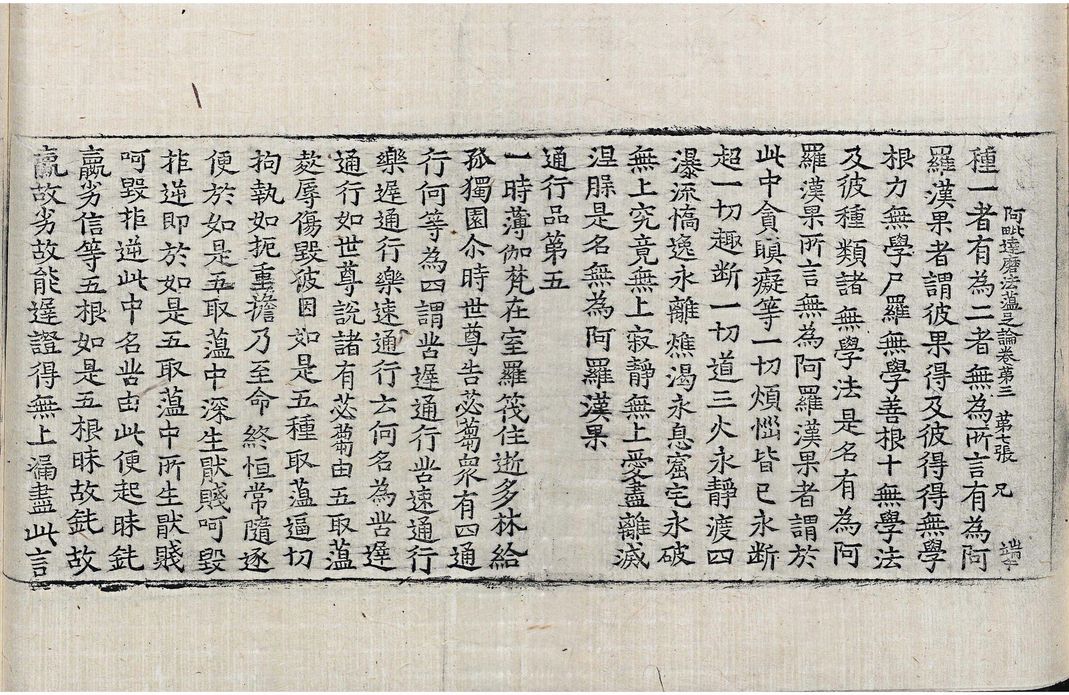 阿毗達磨法蘊足論卷第三 第七張 兄
種一者有為二者無為所言有為阿
羅漢果者謂彼果得及彼得得無學
根力無學尸羅無學善根十無學法
及彼種類諸無學法是名有為阿
羅漢果所言無為阿羅漢果者謂於
此中貪瞋癡等一切煩惱皆已永斷
超一切趣断一切道三火永靜渡四
瀑流憍逸永離燋渴永息窟宅永破
無上究竟無上寂靜無上愛盡離滅
涅槃是名無為阿羅漢果
通行品第五
一時薄伽梵在室羅筏住逝多林給
孤獨園尒時世尊告苾蒭衆有四通
行何等為四謂苦遲通行苦速通行
樂遲通行樂速通行云何名為苦遲
通行如世尊說諸有苾蒭由五取蘊
逼辱傷毀彼因如是五種取蘊逼切
拘執如扼重擔乃至命終恒常隨逐
便於如是五取蘊中深生猒賤呵毀
拒逆即於如是五取蘊中所生猒賤
呵毀拒逆此中名苦由此便起昧鈍
羸劣信等五根如是五根昧故鈍故
羸故劣故能遲證得無上漏盡此言